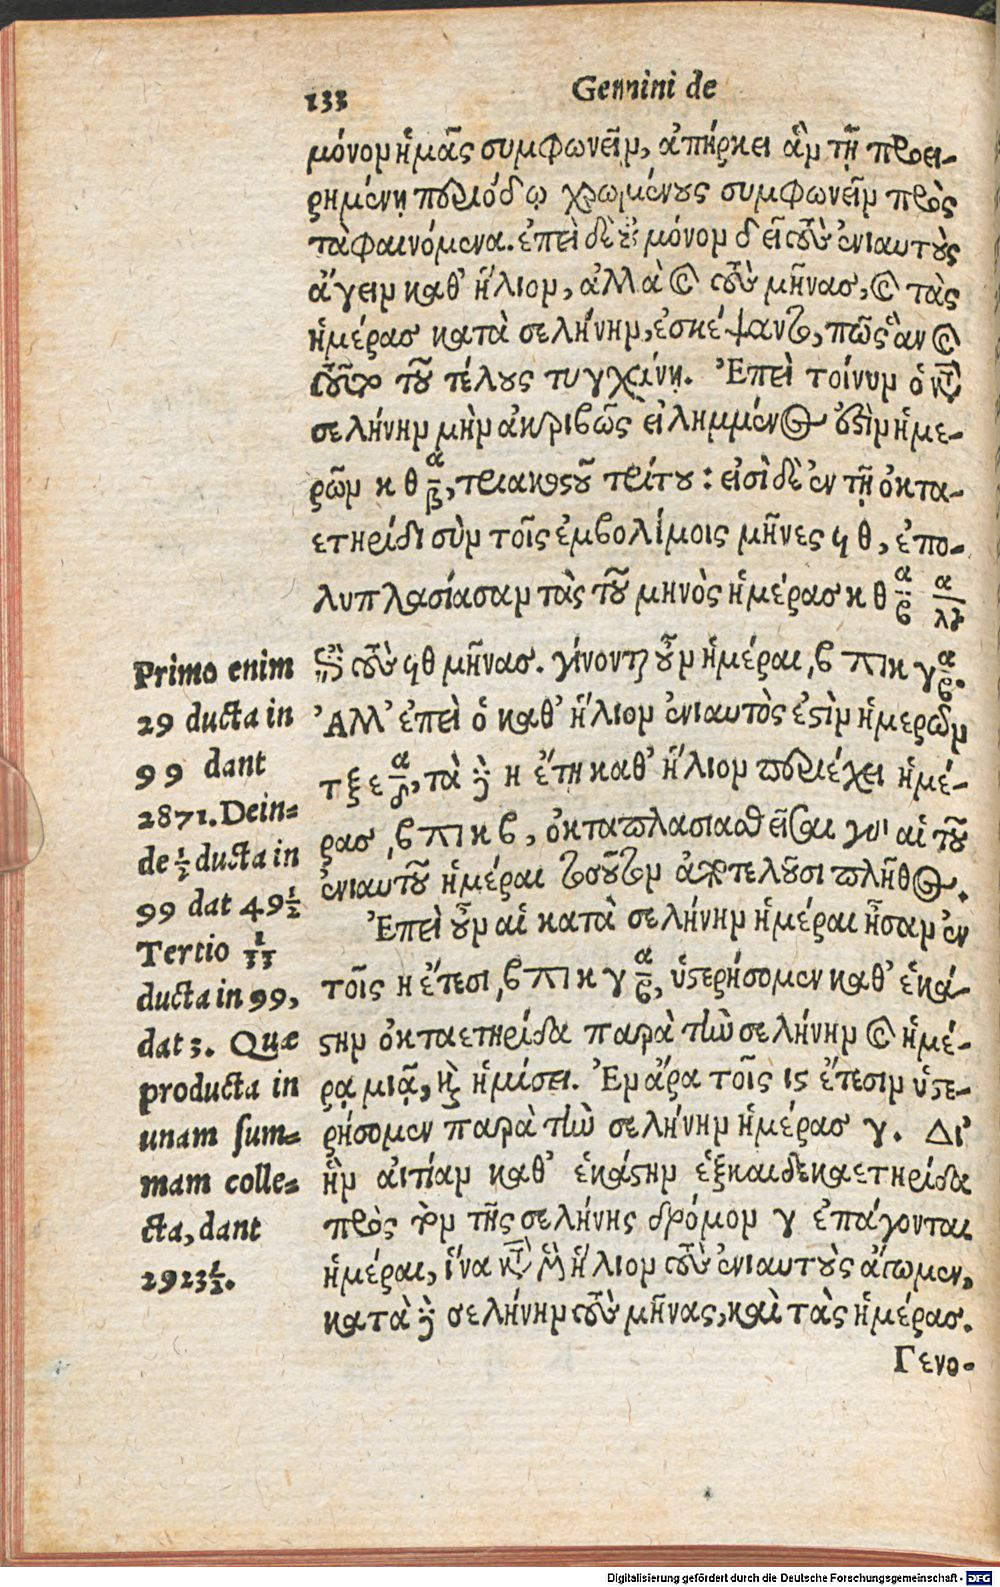 133
Geminini de
μόνον ἡμᾶς συμφωνεῖν, ἀπήρκει ἂν τῇ προει-
ρημένῃ περιόδῳ χρωμένους συμφωνεῖν πρὸς
τὰ φαινόμενα. ἐπεὶ δὲ οὐ μόνον δεῖ τοὺς ἐνιαυτοὺς
ἄγειν καθ' ἥλιον, ἀλλὰ καὶ τοὺς μῆνας, καὶ τὰς
ἡμέρας κατὰ σελήνην, ἐσκέψαντο, πῶς ἂν καὶ
τοῦτο τοῦ τέλους τυγχάνῃ. Ἐπεὶ τοίνυν ὁ κατὰ
σελήνην μὴν ἀκριβῶς εἰλημμένος ἐστὶν ἡμε-
ρῶν κθ α/β, τριακοστοῦ τρίτου : εἰσὶ δὲ ἐν τῇ ὀκτα-
ετηρίδι σὺν τοῖς ἐμβολίμοις μῆνες ϟθ, ἐπο-
λυπλασίασαν τὰς τοῦ μηνὸς ἡμέρας κθ α/β α/λγ
ἐπὶ τοὺς ϟθ μῆνας. γίνονται οὖν ἡμέραι ͵β ϡκγ α/β.
Ἀλλ' ἐπεὶ ὁ καθ' ἥλιον ἐνιαυτὸς ἐστὶν ἡμερῶν
τξε α/δ, τὰ δὲ η ἔτη καθ' ἥλιον περιέχει ἡμέ-
ρας ͵β ϡκβ, ὀκταπλασιασθεῖσαι γὰρ αἱ τοῦ
ἐνιαυτοῦ ἡμέραι τοσοῦτον ἀποτελοῦσι πλῆθος.
Ἐπεὶ οὖν αἱ κατὰ σελήνην ἡμέραι ἦσαν ἐν
τοῖς η ἔτεσι ͵β ϡκγ α/β, ὑστερήσομεν καθ' ἑκά-
στην ὀκταετηρίδα παρὰ τὴν σελήνην καὶ ἡμέ-
ρᾳ μιᾷ, καὶ ἡμίσει. Ἐν ἄρα τοῖς ις ἔτεσιν ὑστε-
ρήσομεν παρὰ τὴν σελήνην ἡμέρας γ. Δι'
ἣν αἰτίαν καθ' ἑκάστην ἑξκαιδεκαετηρίδα
πρὸς τὸν τῆς σελήνης δρόμον γ ἐπάγονται
ἡμέραι, ἵνα κατὰ μὲν ἥλιον τοὺς ἐνιαυτοὺς ἄγωμεν,
κατὰ δὲ σελήνην τοὺς μῆνας, καὶ τὰς ἡμέρας.
Γενο-
Primo enim
29 ducta in
99 dant
2871. Dein-
de 1/2 ducta in
99 dat 49 1/2
Tertio 1/33
ducta in 99,
dat 3. Quæ
producta in
unam sum-
mam colle-
cta, dant
2923 1/2.
Digitalisierung gefördert durch die Deutsche Forschungsgemeinschaft - DFG